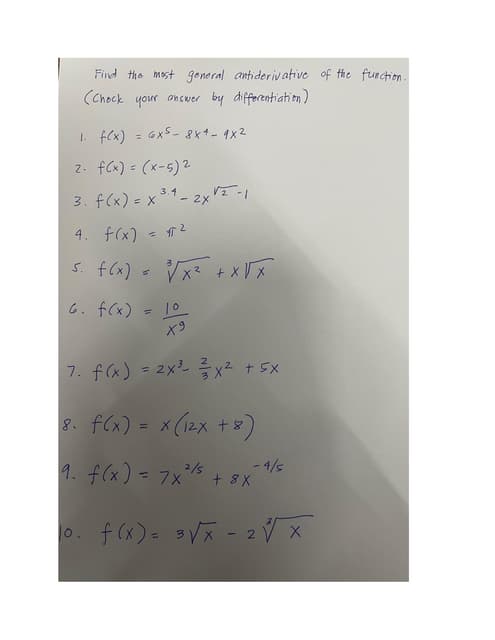 Find the most general antiderivative of the function.
(Check your answer by differentiation)
1. f(x) = 6x⁵ - 8x⁴ - 9x2
2. f(x) = (x-5)2
3. f(x) = x³·⁴ - 2x^√2-1
4. f(x) = π²
5. f(x) = ∛x² + x√x
6. f(x) = 10/x⁹
7. f(x) = 2x³ - 2/3 x² + 5x
8. f(x) = x(12x + 8)
9. f(x) = 7x^2/5 + 8x^-4/5
10. f(x) = 3√x - 2∛x